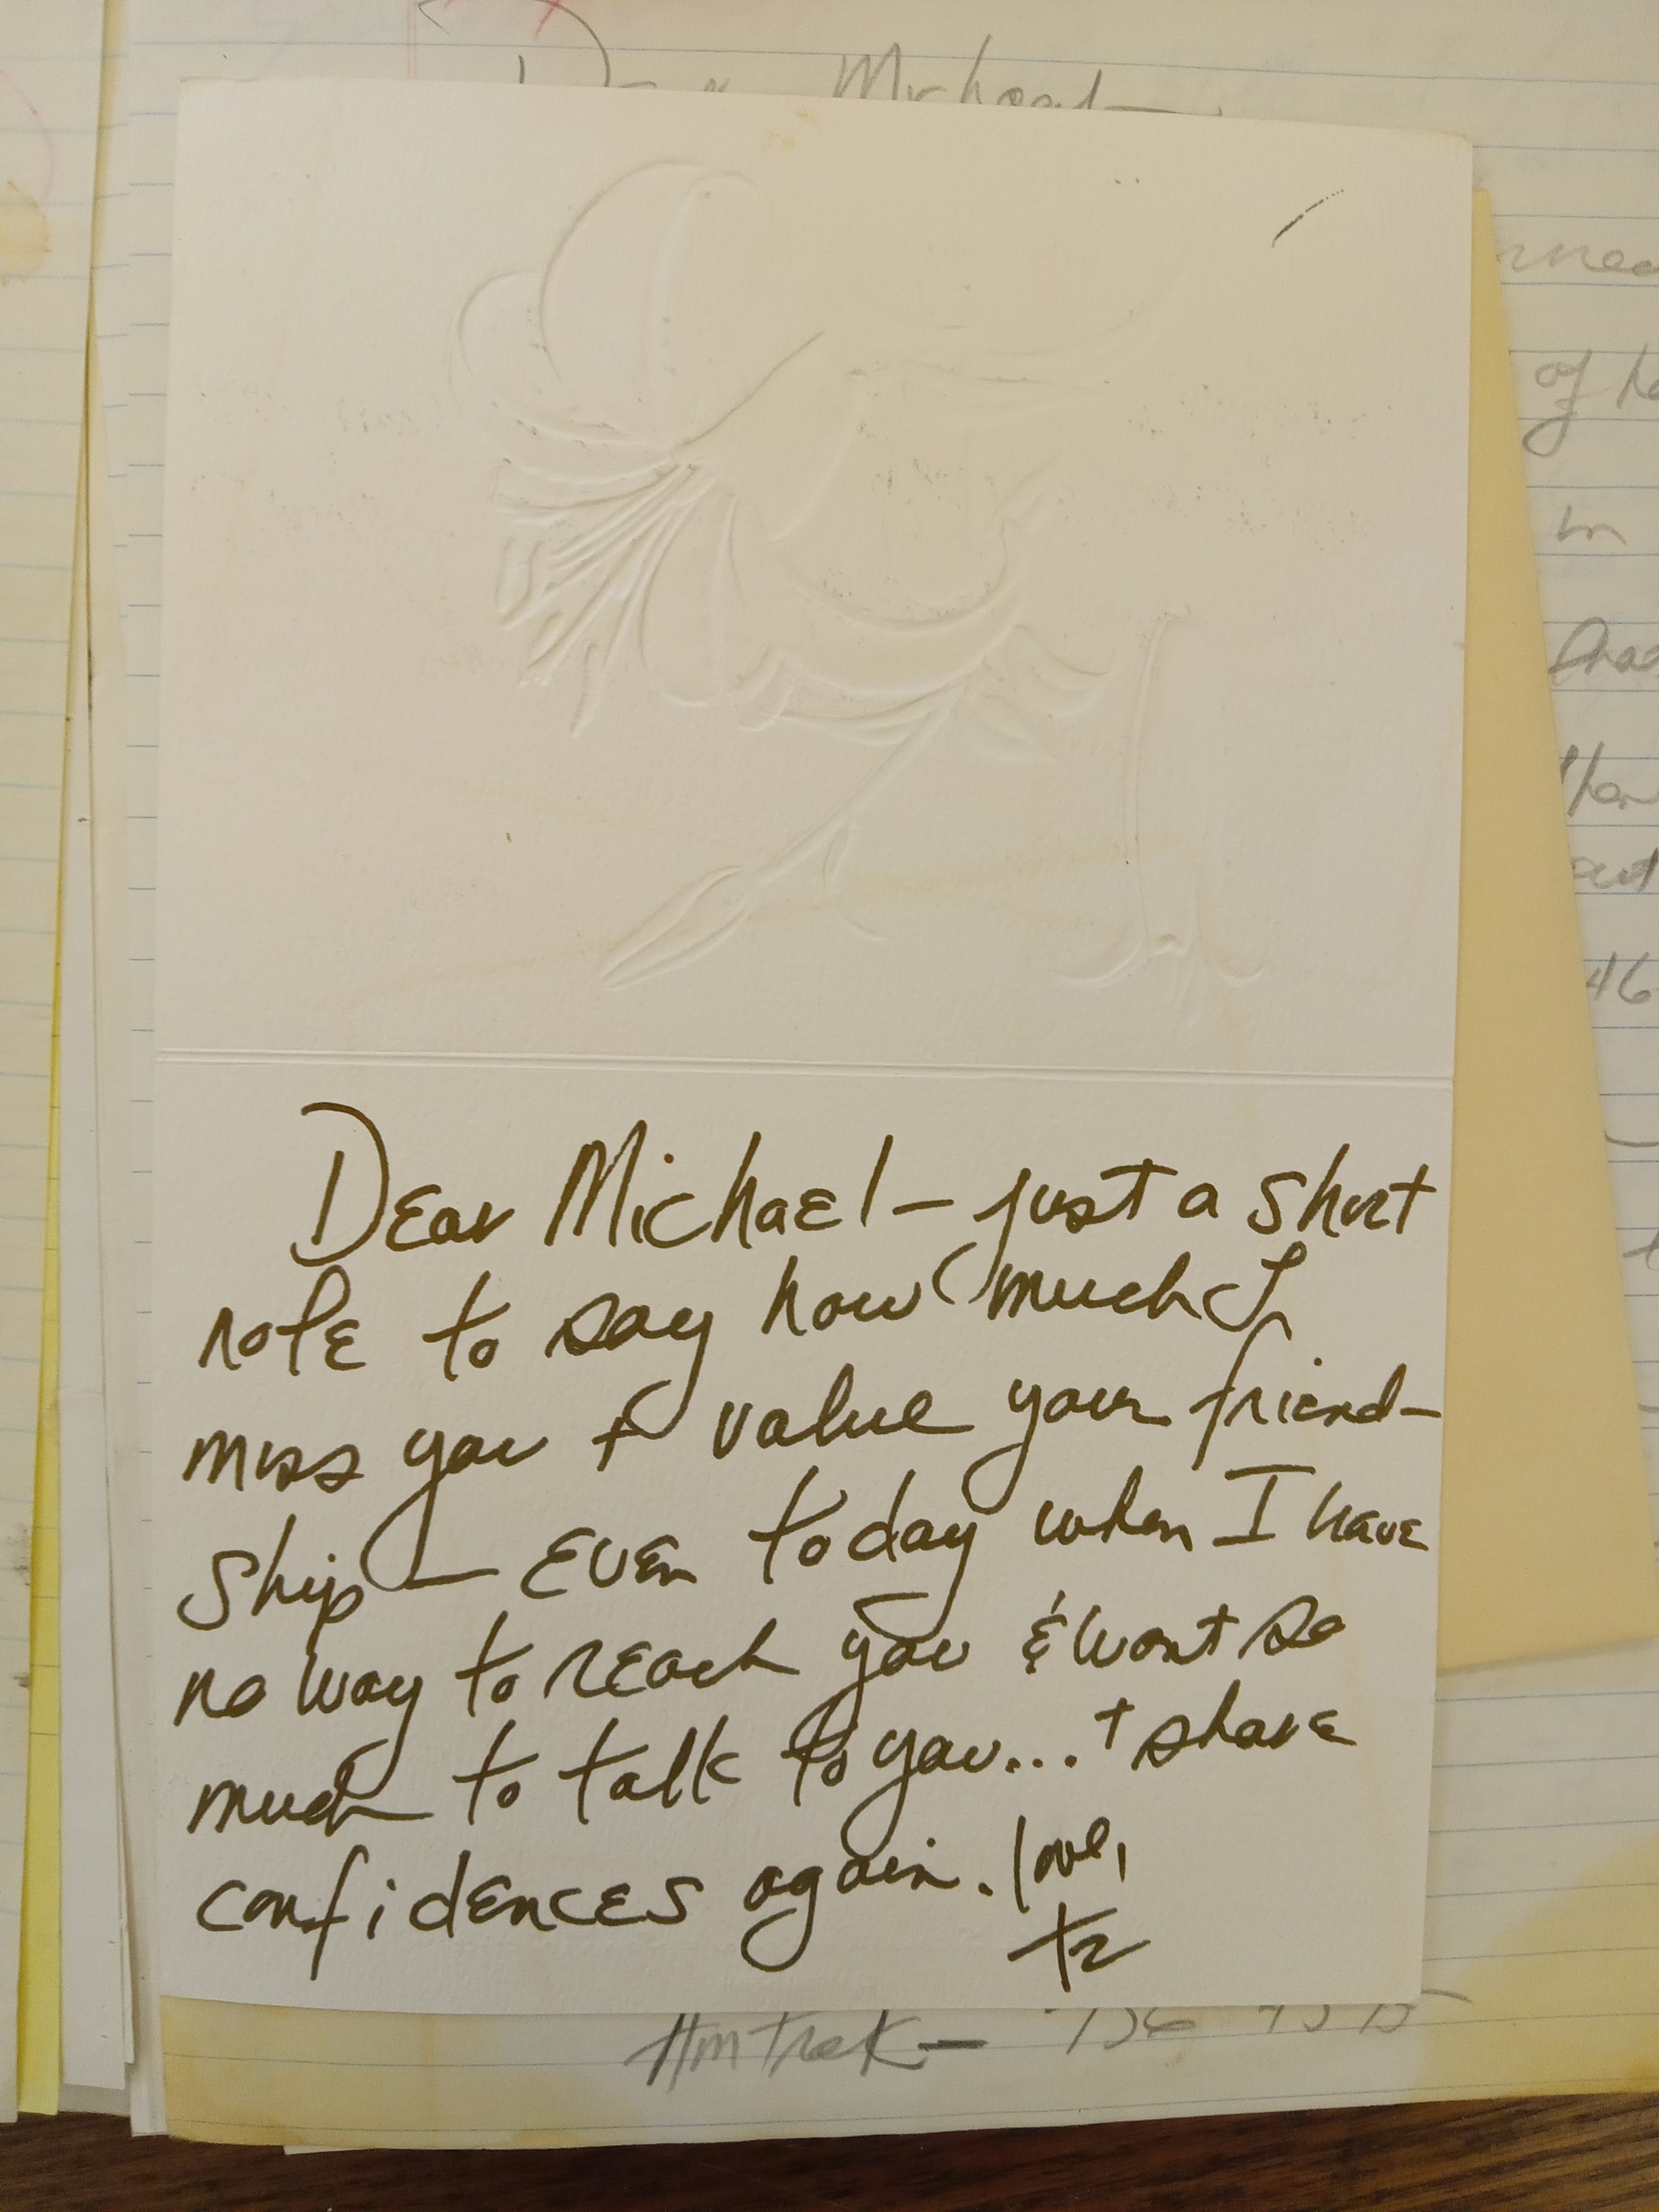 Michael
of
in
46
Dear Michael – just a short
note to say how much I
miss you + value your friend-
ship — even today when I have
no way to reach you & want so
much to talk to you... + share
confidences again. love,
Amtrak —